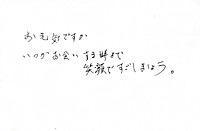 お元気ですか
いつかお会いする時まで
笑顔ですごしましょう。